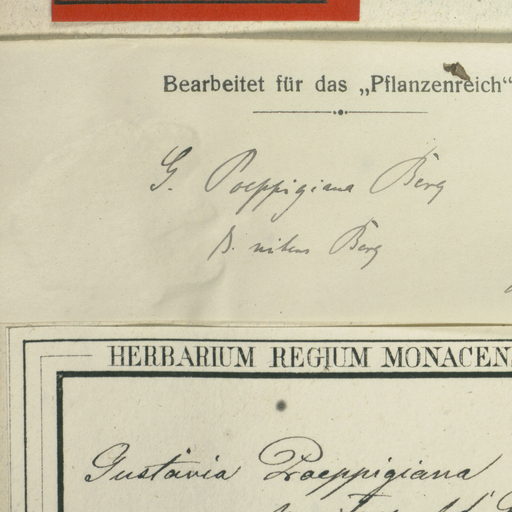 Bearbeitet für das „Pflanzenreich“
G. Poeppigiana Berg
B. nitens Berg
HERBARIUM REGIUM MONACEN
Gustavia Poeppigiana